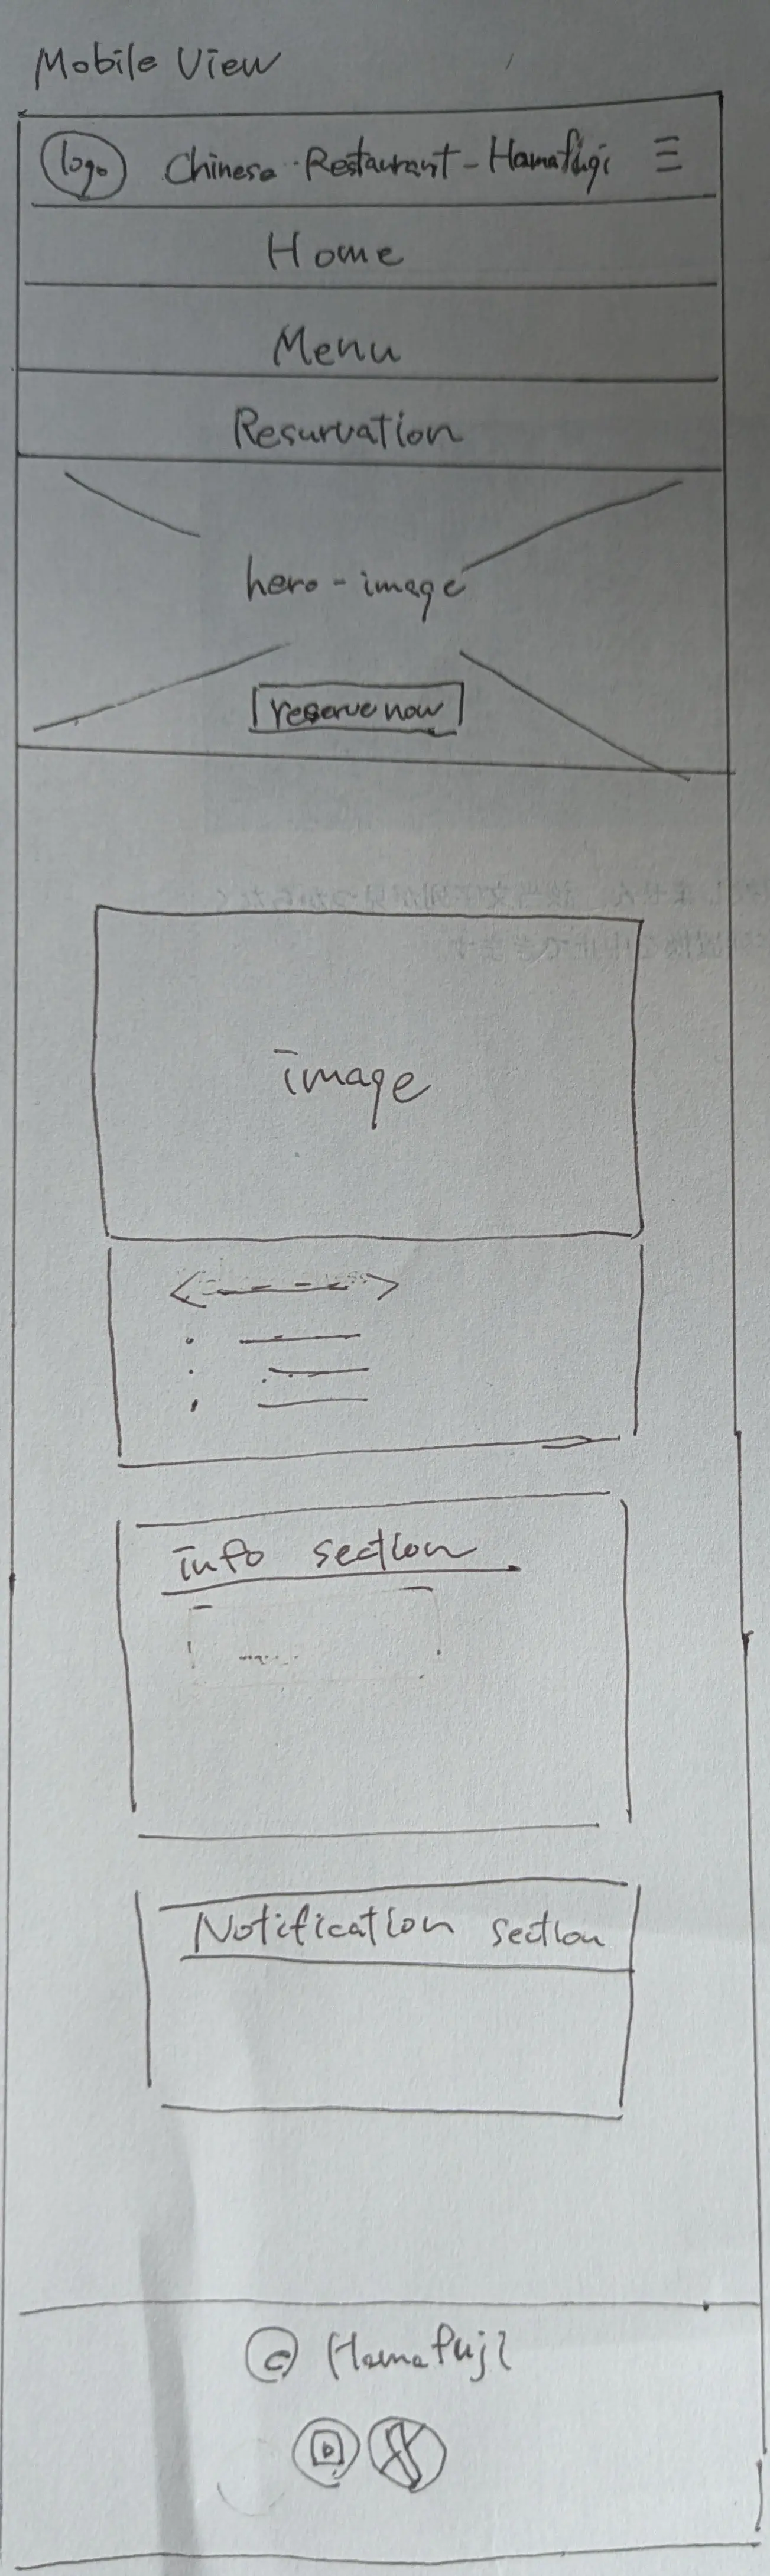 Mobile View
logo Chinese Restaurant - Hamafugi
Home
Menu
Resurvation
hero-image
reserve now
image
info section
Notification section
© Hamafuji